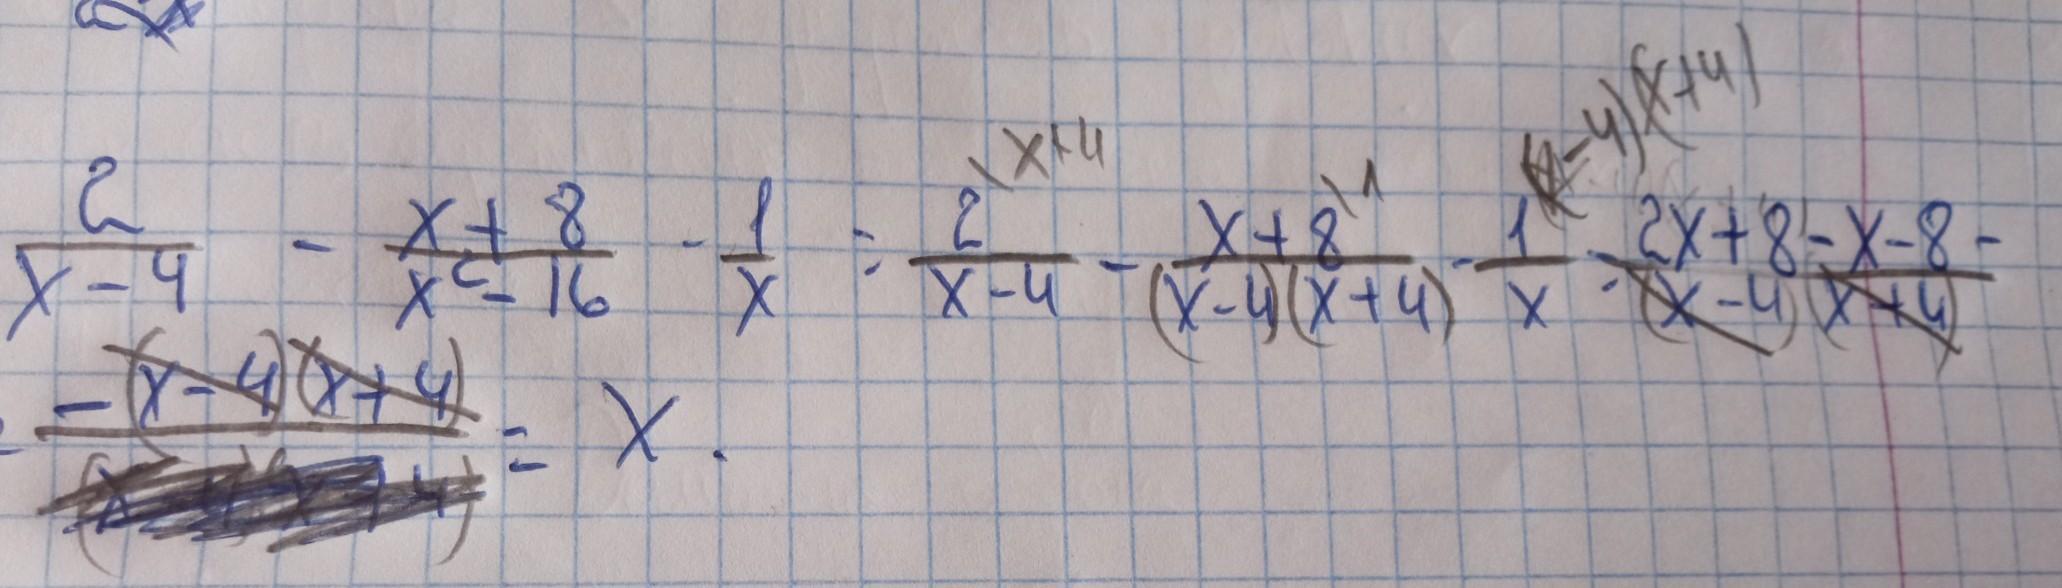 2/(x-4) - (x+8)/(x²-16) - 1/x = 2\x+4/(x-4) - (x+8)\1/((x-4)(x+4)) - 1\(x-4)(x+4)/x = (2x+8-x-8-)/((x-4)(x+4))
-(x-4)(x+4) = x.